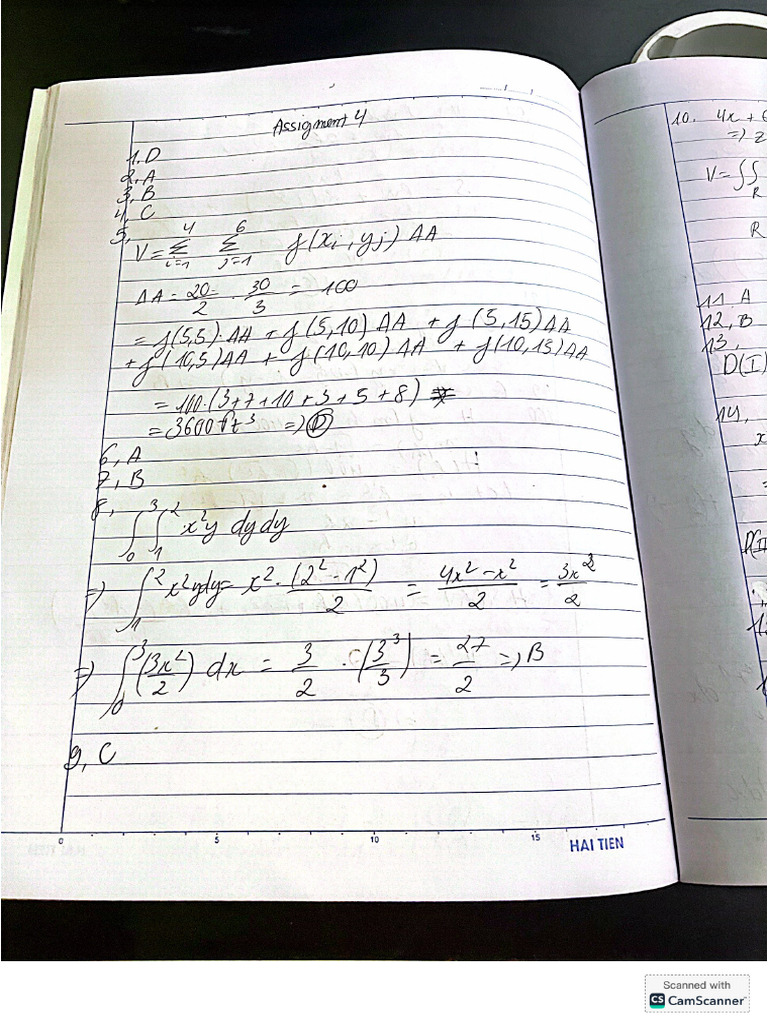 Assigment 4
1, D
2, A
3, B
4, C
5,
V = Σ_{i=1}^{4} Σ_{j=1}^{6} f(xi, yj) ΔA
ΔA = 20/2 . 30/3 = 100
= f(5,5) ΔA + f(5,10) ΔA + f(5,15) ΔA
+ f(10,5) ΔA + f(10,10) ΔA + f(10,15) ΔA
= 100.(3+7+10+3+5+8)
= 3600 ft³ => D
6, A
7, B
8,
∫_0^3 ∫_1^2 x²y dydy
=> ∫_1^2 x²ydy = x² . (2² - 1²)/2 = (4x² - x²)/2 = 3x²/2
=> ∫_0^3 (3x²/2) dx = 3/2 . (3³/3) = 27/2 => B
9, C
0 5 10 15
HAI TIEN
10. 4x +
=> z
V = ∫∫
R
R
11. A
12, B
13,
D(I)
14,
x
=
D(II
Scanned with
CS CamScanner